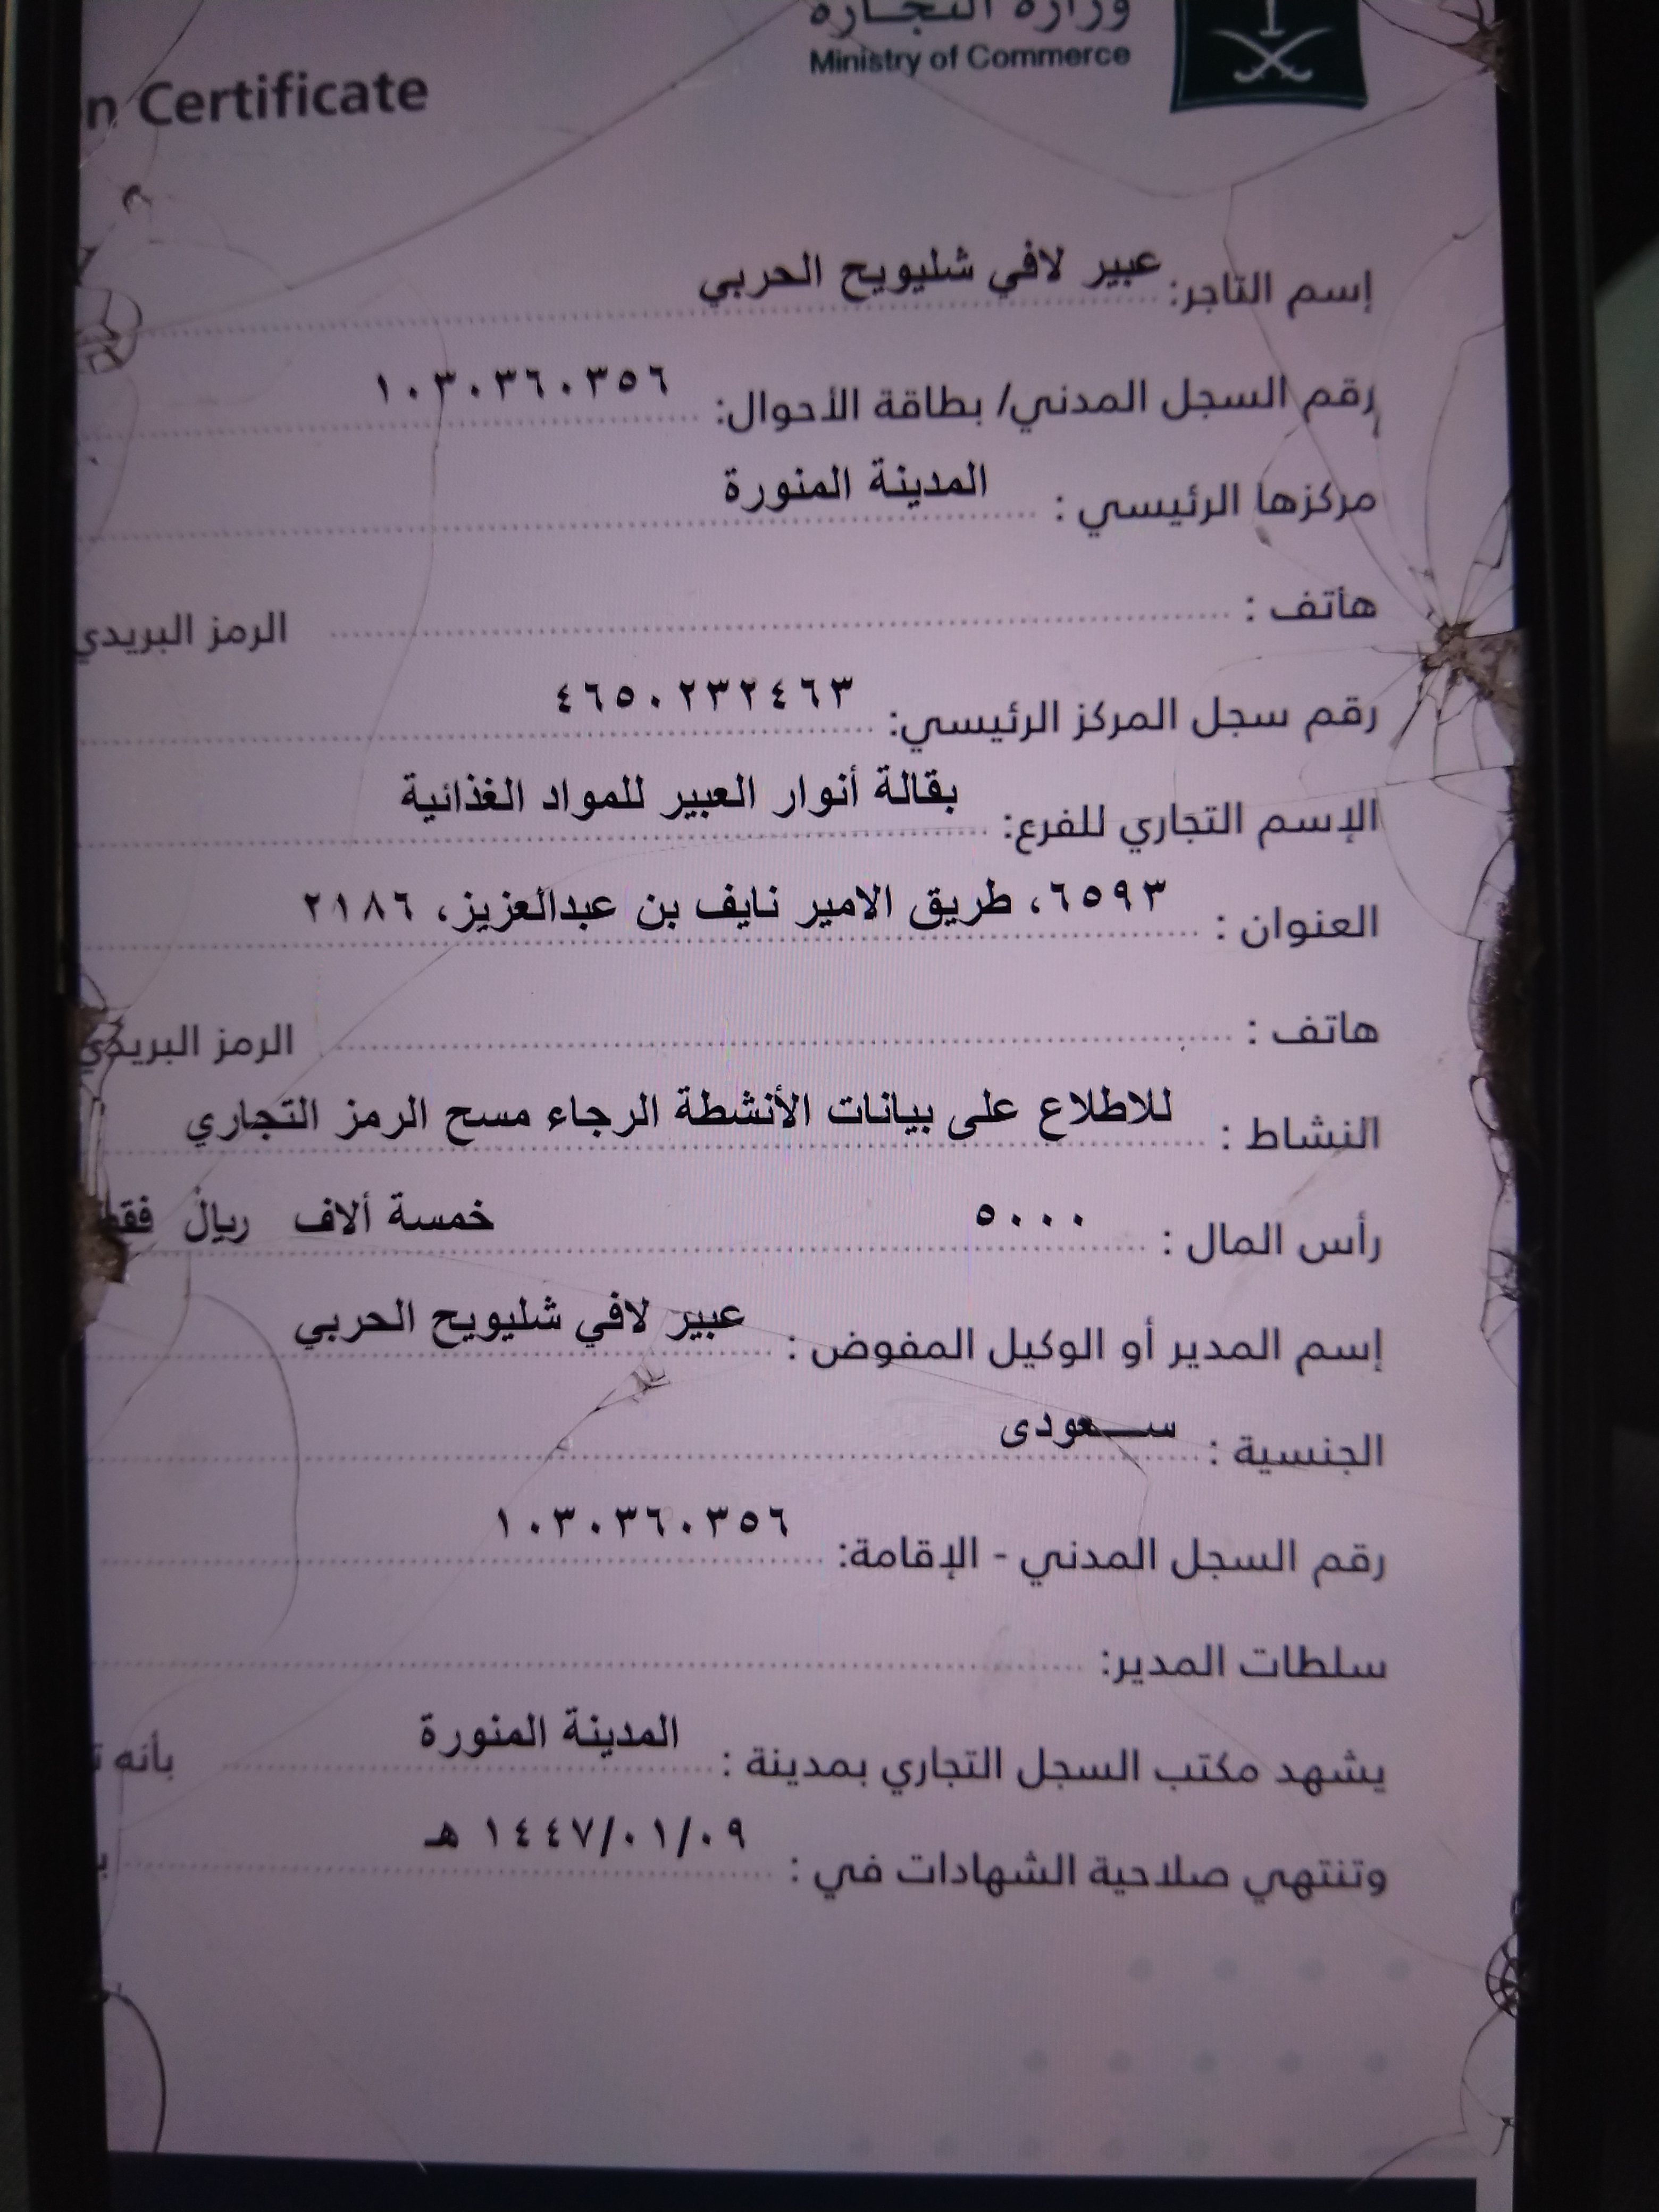 وزارة التجارة
Ministry of Commerce
Certificate
إسم التاجر: عبير لافي شليويح الحربي
رقم السجل المدني/ بطاقة الأحوال: ١٠٣٠٣٦٠٣٥٦
مركزها الرئيسي : المدينة المنورة
هاتف : الرمز البريدي
رقم سجل المركز الرئيسي: ٤٦٥٠٢٣٢٤٦٣
الإسم التجاري للفرع: بقالة أنوار العبير للمواد الغذائية
العنوان : ٦٥٩٣، طريق الامير نايف بن عبدالعزيز، ٢١٨٦
هاتف : الرمز البريدي
النشاط : للاطلاع على بيانات الأنشطة الرجاء مسح الرمز التجاري
رأس المال : ٥٠٠٠ خمسة ألاف ريال
إسم المدير أو الوكيل المفوض : عبير لافي شليويح الحربي
الجنسية : سـعودى
رقم السجل المدني - الإقامة: ١٠٣٠٣٦٠٣٥٦
سلطات المدير:
يشهد مكتب السجل التجاري بمدينة : المدينة المنورة بأنه
وتنتهي صلاحية الشهادات في : ١٤٤٧/٠١/٠٩ هـ